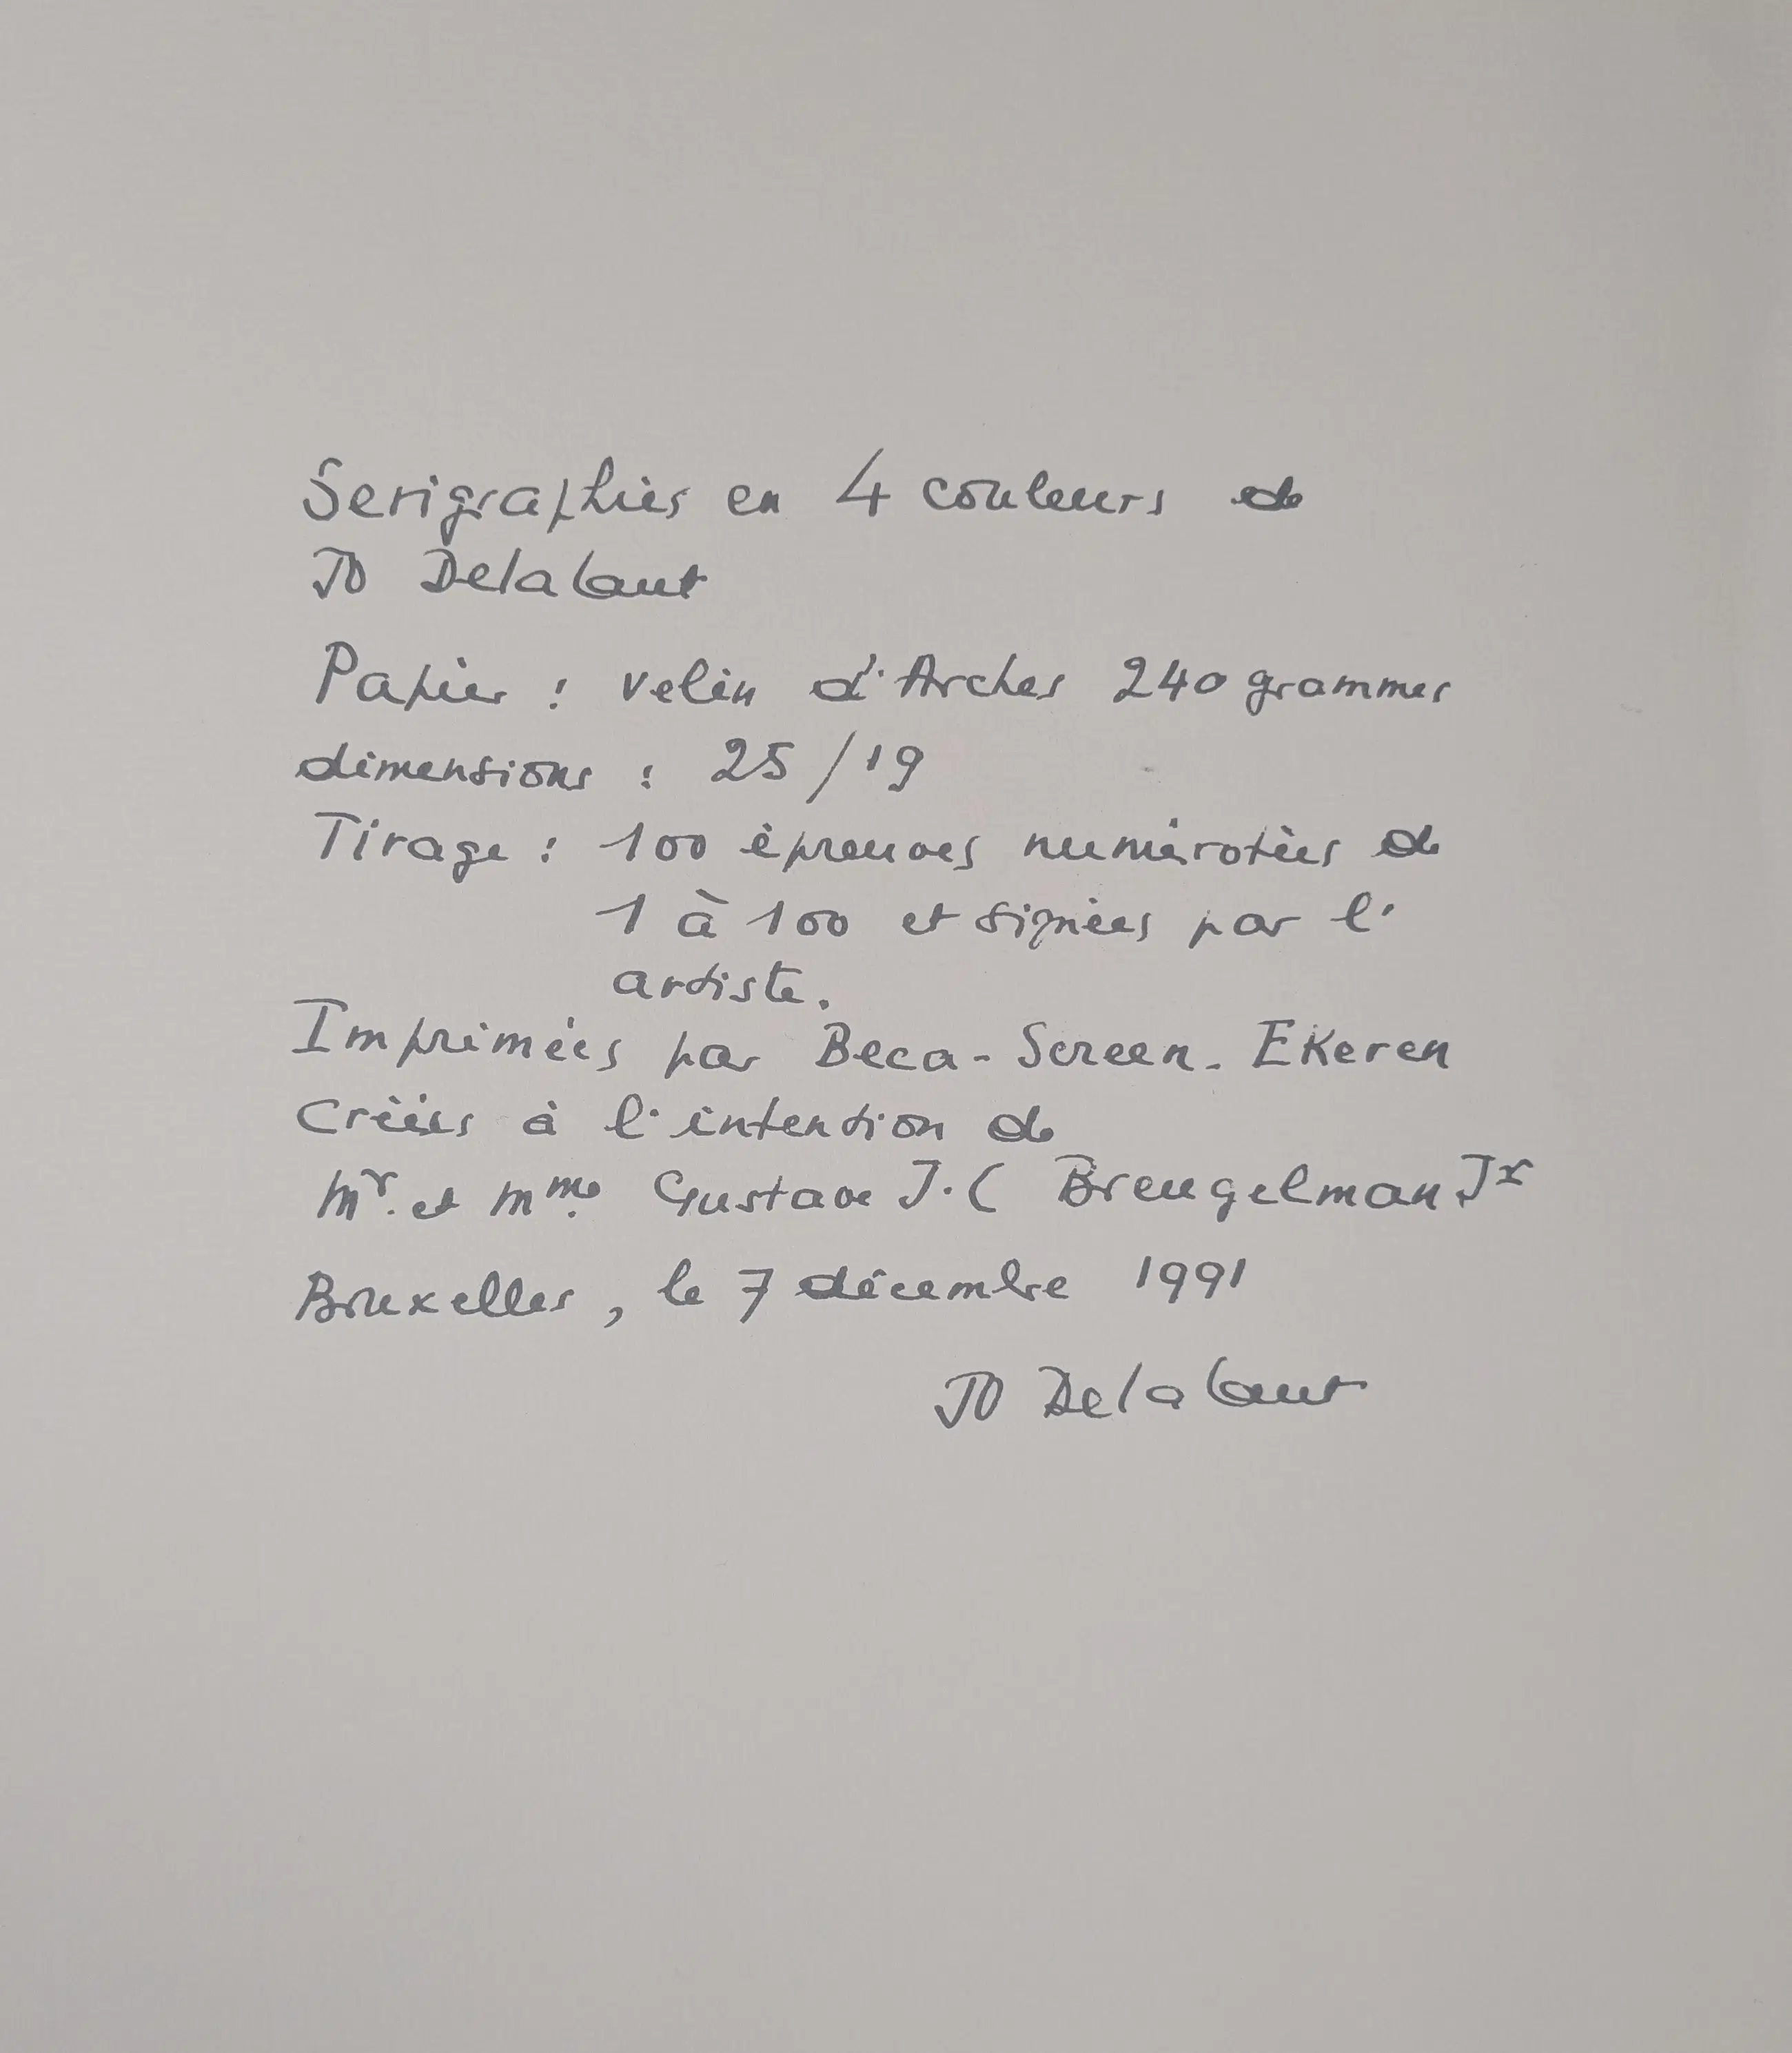 Serigraphies en 4 couleurs de
JO Delahaut
Papier : velin d'Arches 240 grammes
dimensions : 25/19
Tirage : 100 épreuves numérotées de
1 à 100 et signées par l'
artiste.
Imprimées par Beca-Screen. Ekeren
Créées à l'intention de
Mr. et Mme. Gustave J.C Breugelman Jr
Bruxelles, le 7 décembre 1991
JO Delahaut